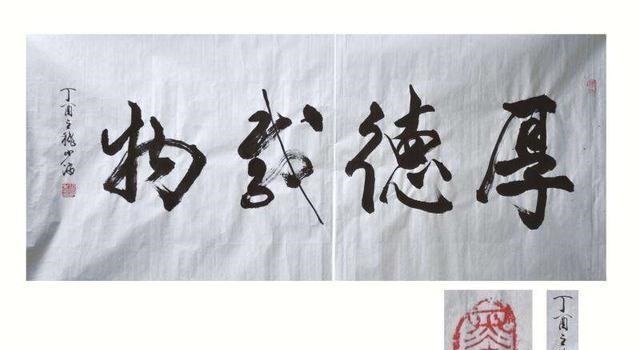 厚德载物
丁酉之秋
丁酉之